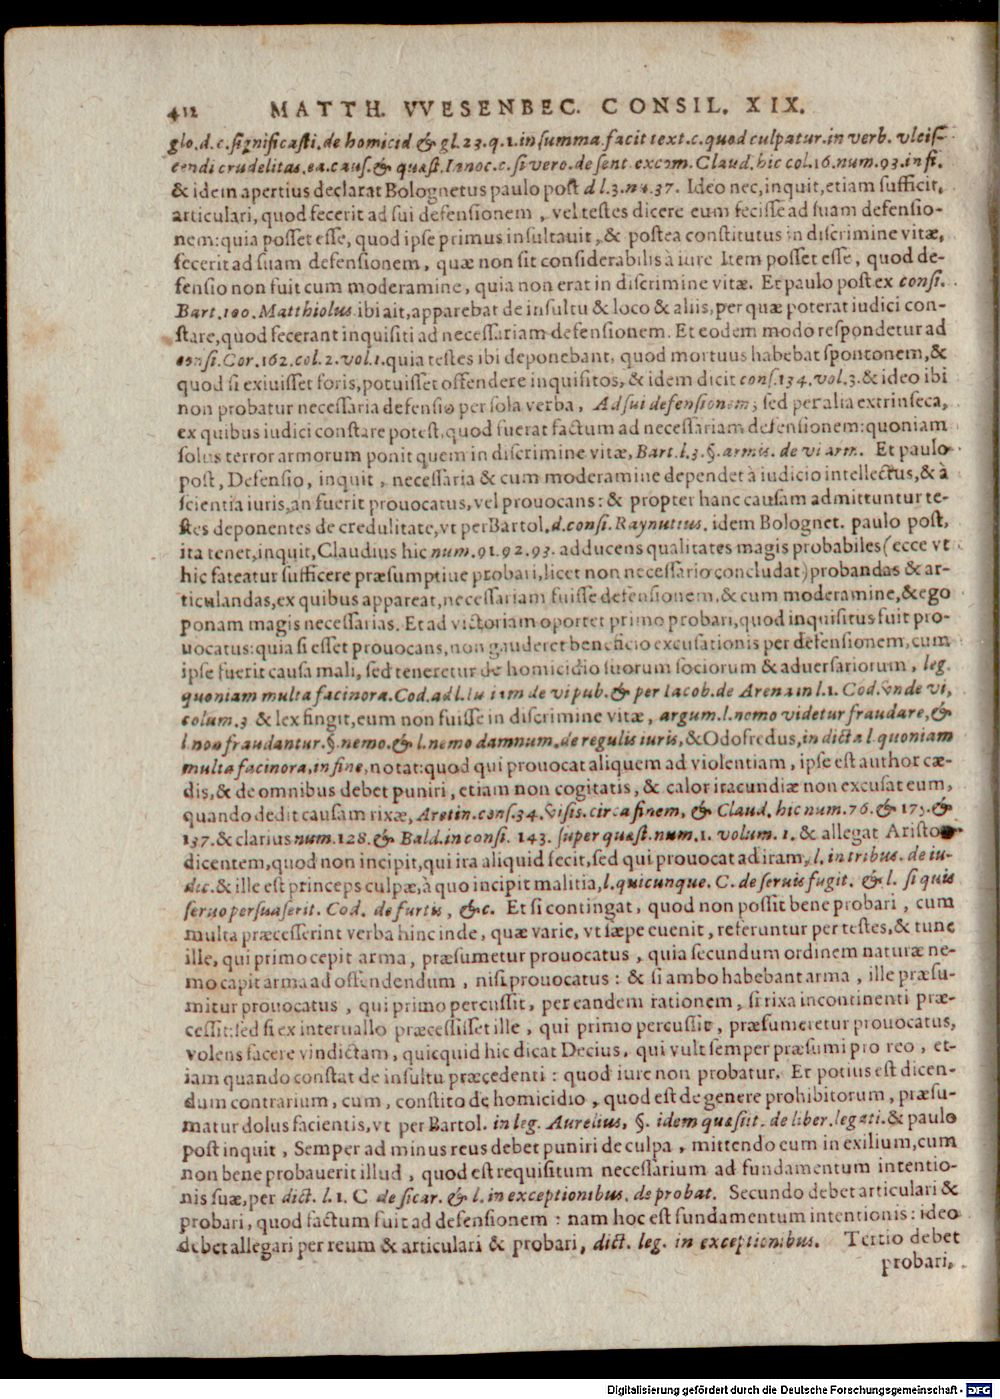 412 MATTH. VVESENBEC. CONSIL. XIX.
glo.d.c.significasti.de homicid & gl.23.q.1.in summa.facit text.c.quod culpatur.in verb. vleis-
cendi crudelitas.ea.caus.& quæst.Innoc.c.si vero.de sent excom.Claud.hic col.16.num.93.in fi.
& idem apertius declarat Bolognetus paulo post d l.3.nu.37. Ideo nec,inquit,etiam sufficit,
articulari, quod fecerit ad sui defensionem, vel testes dicere eum fecisse ad suam defensio-
nem:quia posset esse, quod ipse primus insultauit, & postea constitutus in discrimine vitæ,
fecerit ad suam defensionem, quæ non sit considerabilis à iure Item posset esse, quod de-
fensio non fuit cum moderamine, quia non erat in discrimine vitæ. Et paulo post ex consi.
Bart.100.Matthiolus ibi ait,apparebat de insultu & loco & aliis,per quæ poterat iudici con-
stare,quod fecerant inquisiti ad necessariam defensionem. Et eodem modo respondetur ad
consi.Cor.162.col.2.vol.1.quia testes ibi deponebant, quod mortuus habebat spontonem,&
quod si exiuisset foris,potuisset offendere inquisitos, & idem dicit cons.134.vol.3.& ideo ibi
non probatur necessaria defensio per sola verba, Ad sui defensionem; sed per alia extrinseca,
ex quibus iudici constare potest,quod fuerat factum ad necessariam defensionem:quoniam
solus terror armorum ponit quem in discrimine vitæ, Bart.l.3.§.armis. de vi arm. Et paulo
post, Defensio, inquit, necessaria & cum moderamine dependet à iudicio intellectus,& à
scientia iuris,an fuerit prouocatus, vel prouocans: & propter hanc causam admittuntur te-
stes deponentes de credulitate,vt per Bartol.d.consi.Raynutius. idem Bolognet. paulo post,
ita tenet,inquit, Claudius hic num.91.92.93. adducens qualitates magis probabiles (ecce vt
hic fateatur sufficere præsumptiue probari,licet non necessario concludat) probandas & ar-
ticulandas,ex quibus appareat,necessariam fuisse defensionem,& cum moderamine,& ego
ponam magis necessarias. Et ad victoriam oportet primo probari,quod inquisitus fuit pro-
uocatus:quia si esset prouocans,non gauderet beneficio excusationis per defensionem,cum
ipse fuerit causa mali, sed teneretur de homicidio suorum sociorum & aduersariorum, leg.
quoniam multa facinora.Cod.ad l.Iuliam de vi pub.& per Iacob.de Arena in l.1. Cod.vnde vi,
colum.3 & lex fingit,eum non fuisse in discrimine vitæ, argum.l.nemo videtur fraudare,&
l.non fraudantur.§.nemo.& l.nemo damnum.de regulis iuris,&Odofredus,in dicta l.quoniam
multa facinora,in fine,notat:quod qui prouocat aliquem ad violentiam, ipse est author cæ-
dis,& de omnibus debet puniri, etiam non cogitatis, & calor iracundiæ non excusat eum,
quando dedit causam rixæ, Aretin.cons.34.visis.circa finem, & Claud. hic num.76.& 175.&
137.& clarius num.128.& Bald.in consi. 143. super quæst.num.1. volum. 1.& allegat Aristo
dicentem,quod non incipit,qui ira aliquid fecit,sed qui prouocat ad iram, l. in tribus. de iu-
dic.& ille est princeps culpæ,à quo incipit malitia,l.quicunque. C. de seruis fugit. & l. si quis
seruo persuaserit. Cod. de furtis, &c. Et si contingat, quod non possit bene probari, cum
multa præcesserint verba hinc inde, quæ varie, vt sæpe euenit, referuntur per testes,& tunc
ille, qui primo cepit arma, præsumetur prouocatus, quia secundum ordinem naturæ ne-
mo capit arma ad offendendum, nisi prouocatus: & si ambo habebant arma, ille præsu-
mitur prouocatus, qui primo percussit, per eandem rationem, si rixa incontinenti præ-
cessit:sed si ex interuallo præcessisset ille, qui primo percussit, præsumeretur prouocatus,
volens facere vindictam, quicquid hic dicat Decius, qui vult semper præsumi pro reo, et-
iam quando constat de insultu præcedenti: quod iure non probatur. Et potius est dicen-
dum contrarium, cum, constito de homicidio, quod est de genere prohibitorum, præsu-
matur dolus facientis,vt per Bartol. in leg. Aurelius, §. idem quæsiit. de liber.legati.& paulo
post inquit, Semper ad minus reus debet puniri de culpa, mittendo eum in exilium,cum
non bene probauerit illud, quod est requisitum necessarium ad fundamentum intentio-
nis suæ,per dict. l.1. C de sicar. & l.in exceptionibus. de probat. Secundo debet articulari &
probari, quod factum fuit ad defensionem: nam hoc est fundamentum intentionis: ideo
debet allegari per reum & articulari & probari, dict. leg. in exceptionibus. Tertio debet
probari,
Digitalisierung gefördert durch die Deutsche Forschungsgemeinschaft - DFG